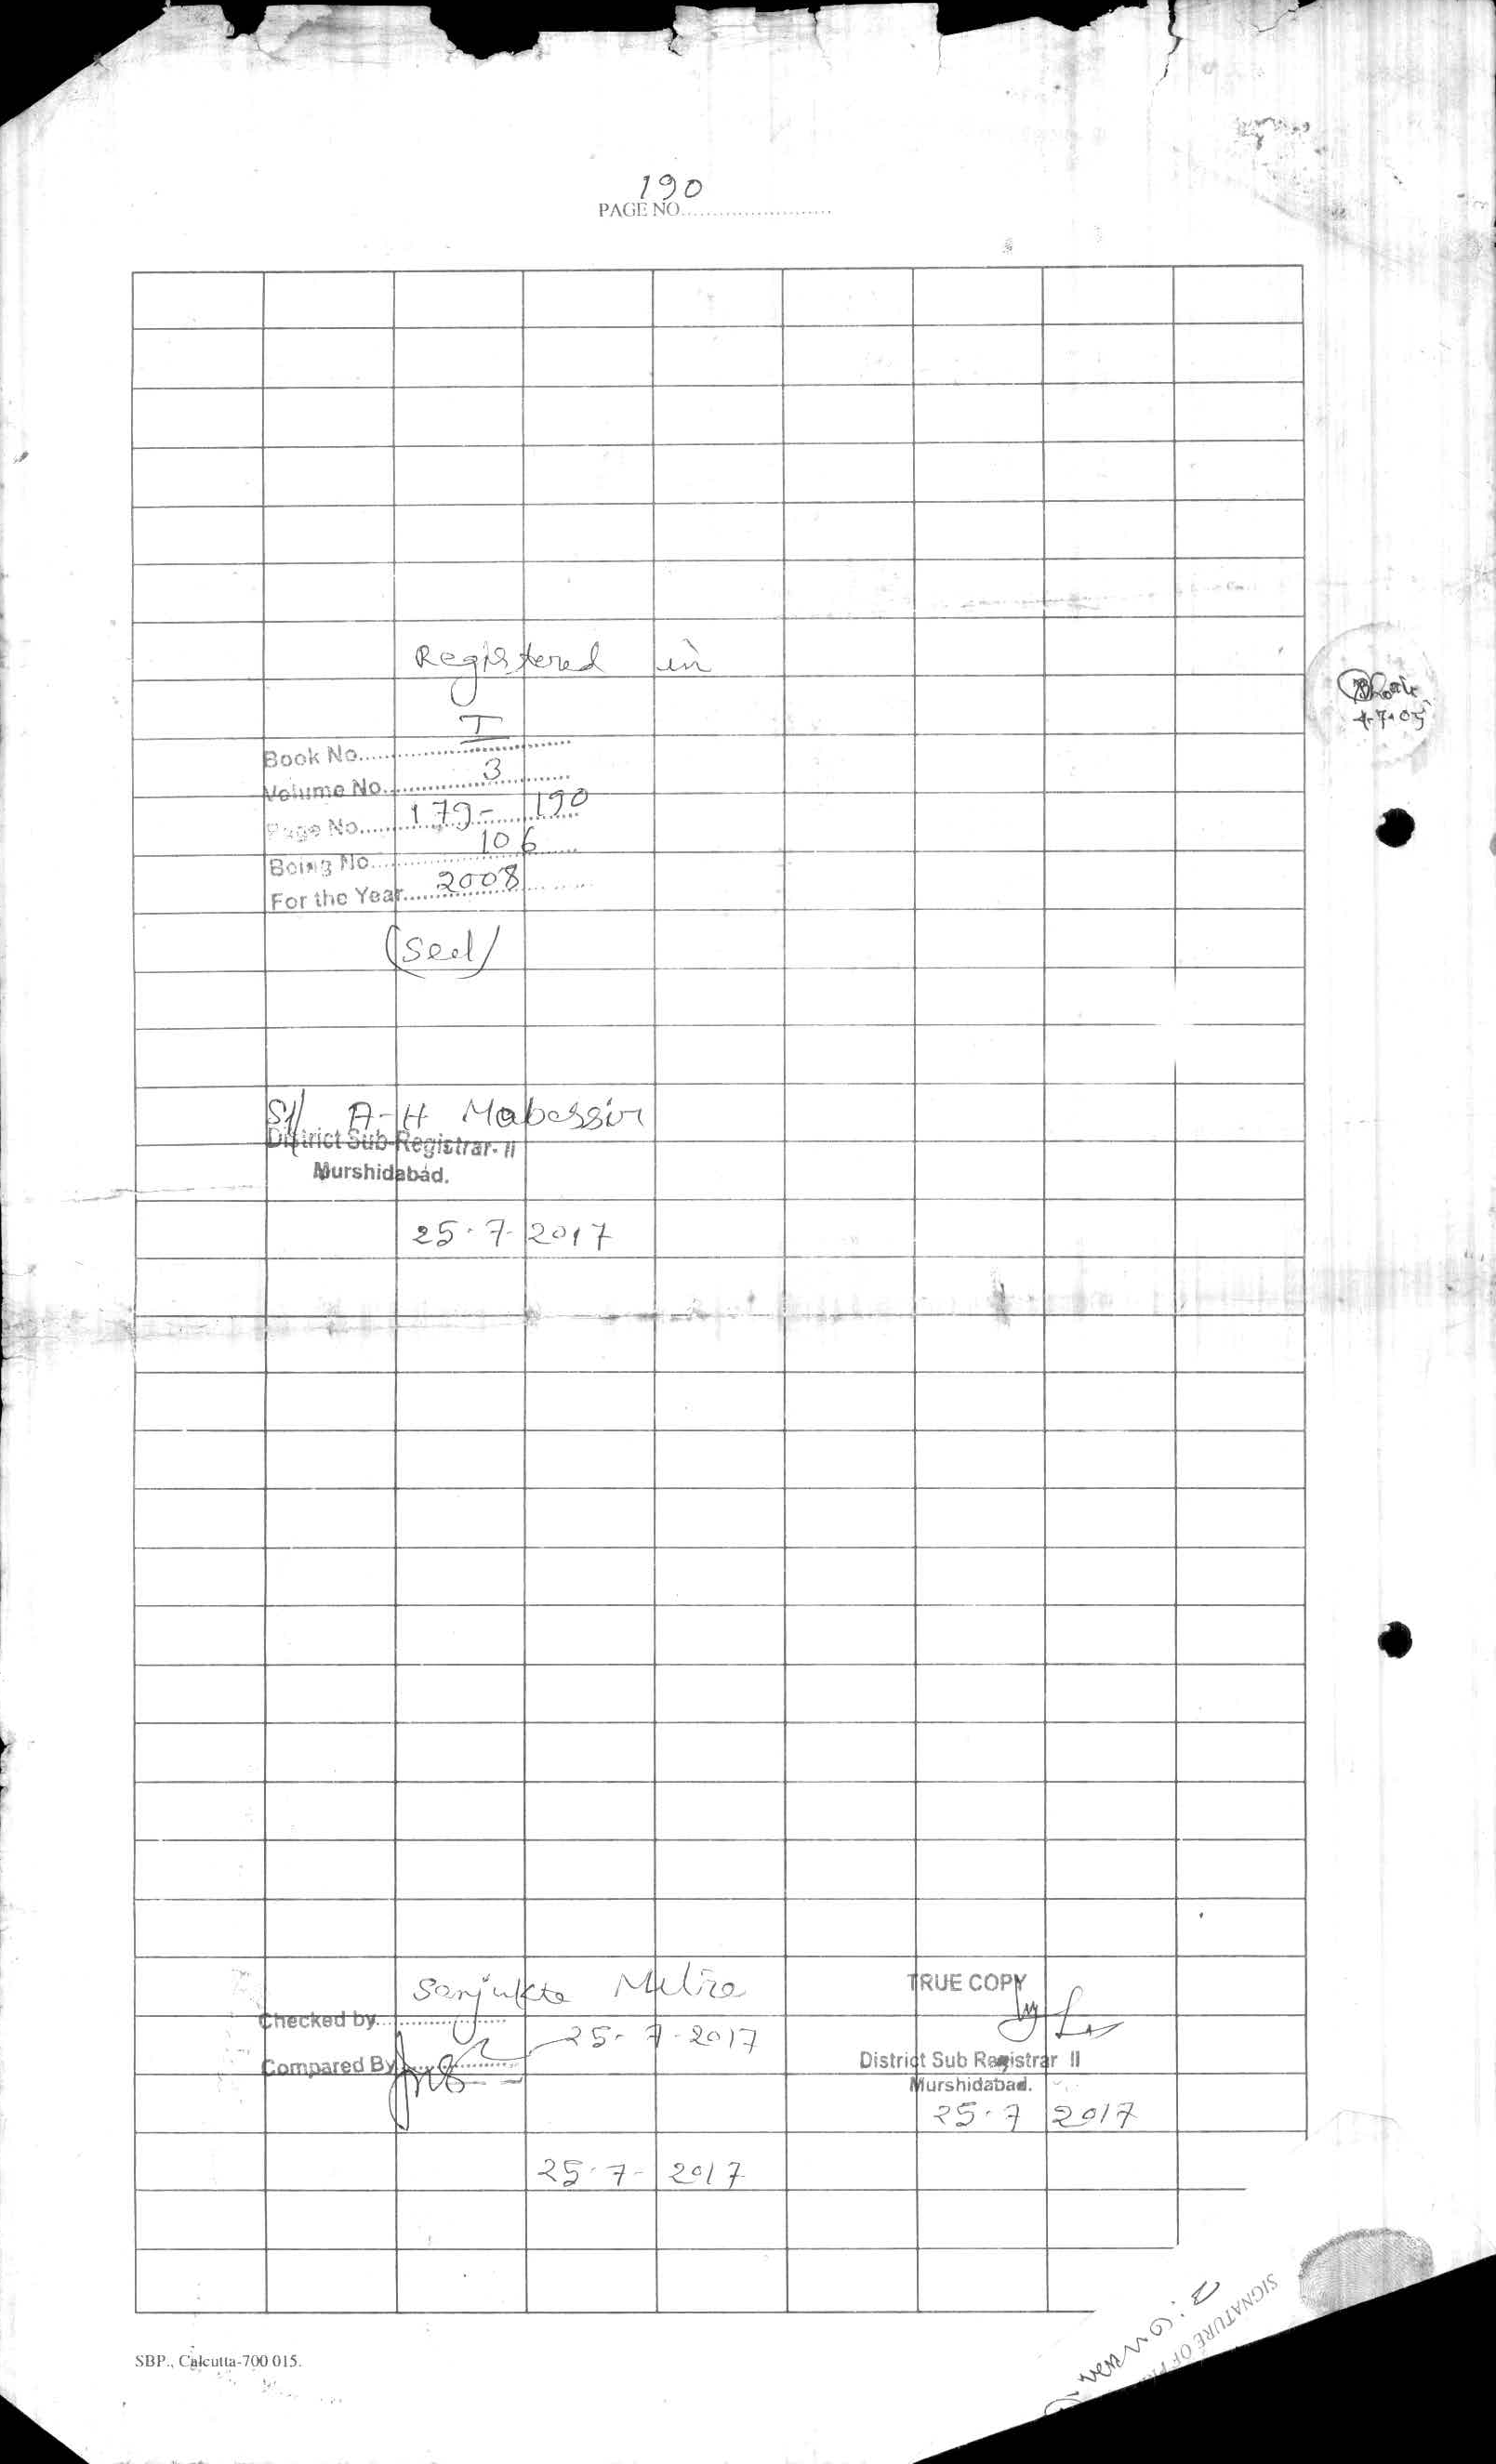 190
PAGE NO..........................
Registered in
Book No. I
Volume No. 3
Page No. 179- 190
Being No. 106
For the Year 2008
(Seal)
4-7-05
Sd/ A-H Mabassir
District Sub-Registrar- II
Murshidabad.
25-7-2017
Sanjukta Mitra
Checked by
25-7-2017
Compared By
25-7-2017
TRUE COPY
District Sub Registrar II
Murshidabad.
25-7 2017
SIGNATURE OF
SBP., Calcutta-700 015.